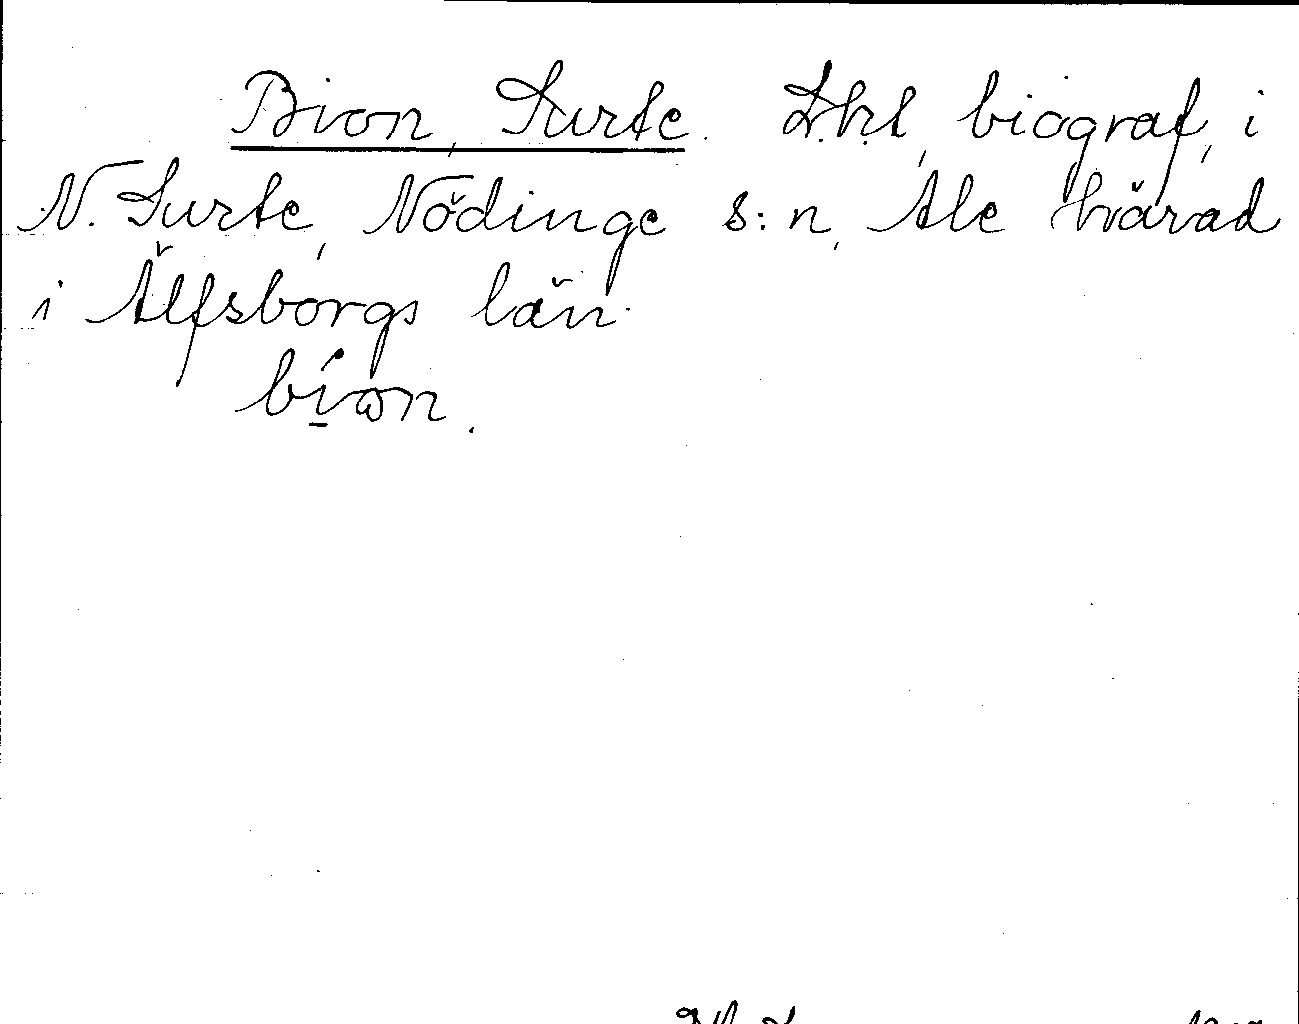 Bion, Surte. Lht, biograf, i
N. Surte, Nödinge s:n, Ale härad
i Älfsborgs län.
bíon.